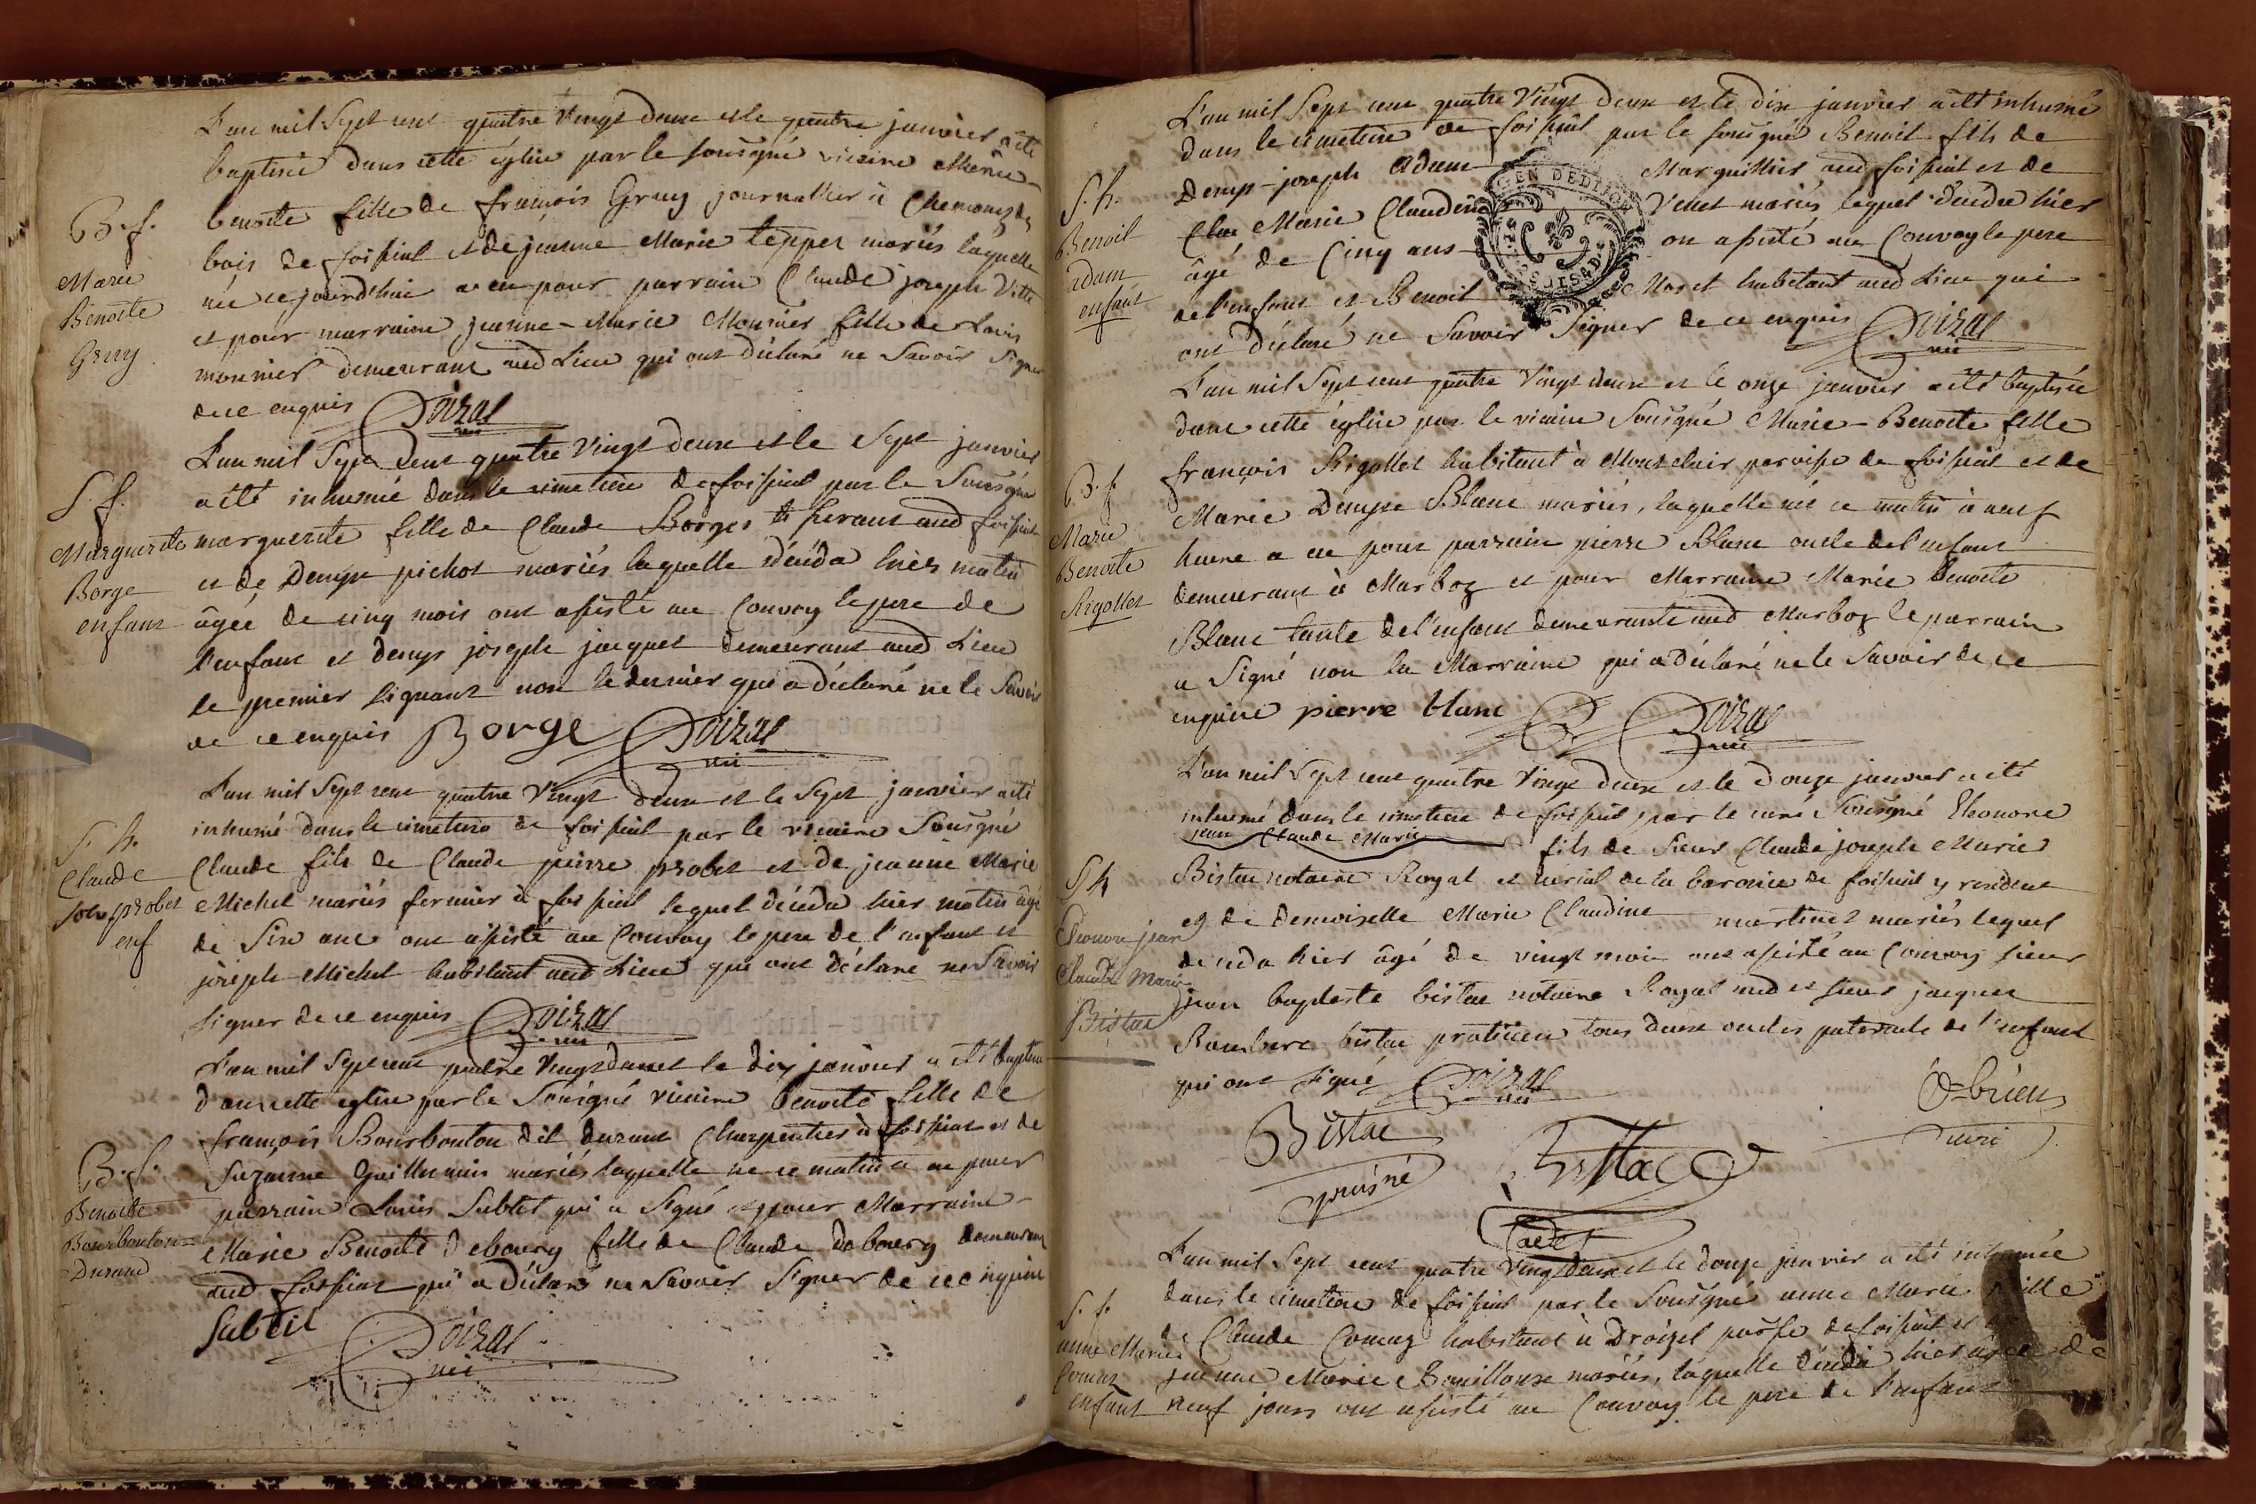 L'an mil Sept cent quatre Vingt deux et le quatre janvier a été
baptisée dans cette église par le sousigné vicaire Marie
benoite fille de françois Gruy journallier à
bois de foissiat et de jeanne Marie Tepper mariés laquelle
née cejourd'hui a eu pour parrain Claude joseph Vitte
et pour marraine jeanne-Marie Mounier fille de Louis
mounier demeurant aud Lieu qui ont déclaré ne Savoir Signer
de ce enquis Doizat vic
B. f.
Marie
Benoite
Gruy
L'an mil Sept Cent quatre Vingt deux et le Sept janvier
a été inhumée dans le cimetière de foissiat par le Sousigné
marguerite fille de Claude Borges aud foissiat
et de Denyse pichot mariés laquelle décéda hier matin
âgée de cinq mois ont assisté au Convoy le pere de
l'enfant et denys joseph jacquet demeurant aud Lieu
le premier signant non le dernier qui a déclaré ne le Savoir
de ce enquis Borge Doizat vic
S. f.
Marguerite
Borge
enfant
L'an mil Sept cent quatre Vingt deux et le Sept janvier a été
inhumé dans le cimetière de foissiat par le vicaire Sousigné
Claude fils de Claude pierre probet et de jeanne Marie
Michel mariés fermier à foissiat lequel décéda hier matin âgé
de Six ans ont assisté au Convoy le pere de l'enfant et
joseph Michel habitant aud Lieu qui ont déclaré ne Savoir
signer de ce enquis Doizat vic
S. h.
Claude
probet
enf
L'an mil Sept cent quatre Vingt deux et le dix janvier a été baptisée
dans cette eglise par le Sousigné vicaire benoite fille de
françois Bourbouton dit durand Charpentier à foissiat et de
Suzanne Guillemin mariés laquelle née ce matin a eu pour
parrain Louis Subtet qui a Signé et pour Marraine
Marie Benoite debourg fille de Claude debourg demeurant
aud foissiat qui a déclaré ne Savoir Signer de ce enquise
Subtil
Doizat
vic
B. f.
Benoite
Bourbouton
Durand
L'an mil Sept cent quatre Vingt deux et le dix janvier a été inhumé
dans le cimetière de foissiat par le sousigné Benoit fils de
Denys-joseph Adam Marguillier aud foissiat et de
Marie Claudine Venet mariés lequel décéda hier
âgé de Cinq ans on assisté au Convoy le pere
de l'enfant et Benoit Moret habitant aud Lieu qui
ont déclaré ne Savoir Signer de ce enquis Doizat vic
GEN DE DIJON
S. h.
Benoit
adam
enfant
L'an mil Sept cent quatre Vingt deux et le onze janvier a été baptisée
dans cette église par le vicaire Sousigné Marie-Benoite fille
françois Rigollet habitant à Montclair paroisse de foissiat et de
Marie Denyse Blanc mariés, laquelle née ce matin à neuf
heure a eu pour parrain pierre Blanc oncle de l'enfant
demeurant à Marboz et pour Marraine Marie benoite
Blanc tante de l'enfant demeurante aud Marboz le parrain
a Signé non la Marraine qui a déclaré ne le Savoir de ce
enquise pierre blanc Doizat vic
B. f
Marie
Benoite
Rigollet
L'an mil Sept cent quatre Vingt deux et le Douze janvier a été
inhumé dans le cimetière de foissiat, par le curé Sousigné Eleonore
jean Claude Marie fils de Sieur Claude joseph Marie
Bistac notaire Royal et curial de la baronie de foissiat y resident
et de demoiselle Marie Claudine martinet mariés lequel
deceda hier âgé de vingt mois ont assisté au Convoy sieur
jean baptiste bistac notaire Royal aud et sieur jacques
Rambert bistac praticien tous deux oncles paternels de l'enfant
qui ont signé Doizat vic
Bistac
puisné
Bistac
Cadet
O-brien
curé
S h
Eleonore jean
Claude Marie
Bistac
L'an mil Sept cent quatre Vingt deux et le douze janvier a été inhumée
dans le cimetière de foissiat par le Sousigné anne Marie fille
de Claude Comaz habitant à Droizel parsse de foissiat et
jeanne Marie Bouilloux mariés, laquelle décéda hier âgée de
neuf jours ont assisté au Convoy le pere de l'enfant
S. f.
anne Marie
Comaz
enfant